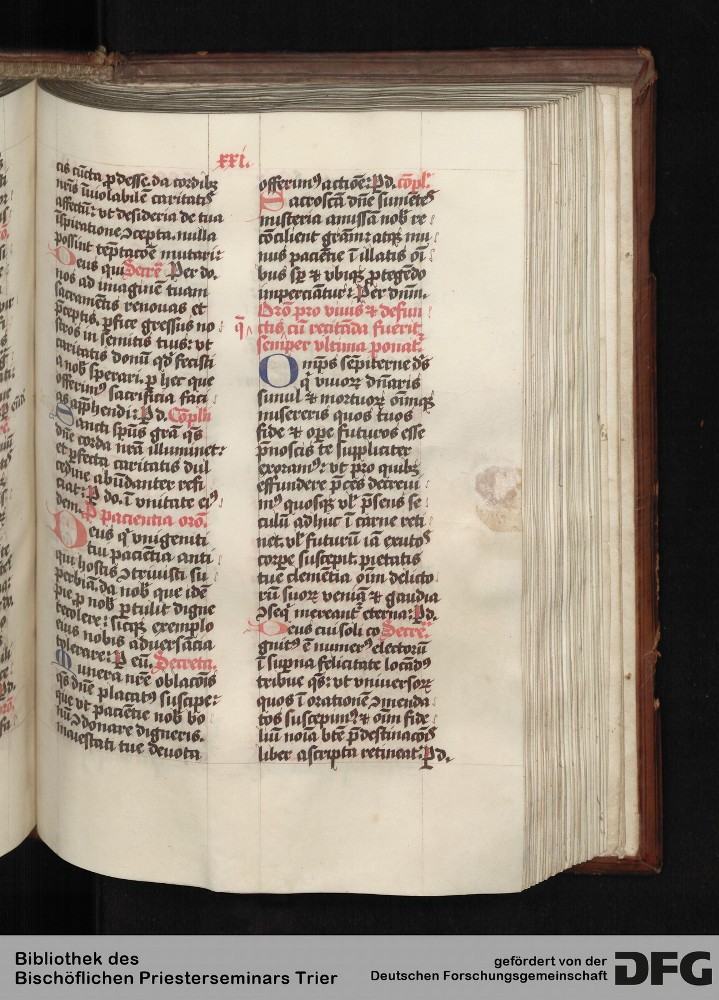 xxi.
cis cūcta ꝓdesse. da cordibꝫ
nr̄is īuiolabilē caritatꝭ
affectū: vt desideria de tua
īspiratione ꝯcepta. nulla
possint tēptacōe mutari:
Deus qui Secre᷑ Per do.
nos ad imaginē tuam
sacramētis renouas et
p̄ceptis. ꝑfice gressus no
stros in semitis tuis: vt
caritatis donū qd̄ fecisti
a nob̄ sperari. ꝑ hec que
offerimꝰ sacrificia faci
as apphendi: P d. Cōpln̄
Sancti sp̄us grā q̄s
dn̄e corda nr̄a illuminet:
et ꝑfecta caritatis dul
cedine abūdanter refi
ciat: P do. ī vnitate eiꝰ
dem. P pacientia orō.
Deus q̄ vnigeniti
tui paciētia anti
qui hostis ꝯtriuisti su
perbiā. da nob̄ que idē
pie. ꝓ nob̄ ꝑtulit digne
recolere: sicqꝫ exemplo
eius nobis aduersācia
tolerare: P eū. Secreta.
Munera nr̄e oblacōis
q̄s dn̄e placatꝰ suscipe:
que vt paciētie nob̄ bo
nū ꝯdonare digneris.
maiestati tue deuota
offerimꝰ actiōe: P d. cōpl.
Sacroscā dn̄e sumētes
misteria amissā nob̄ re
cōcilient grām: atqꝫ mu
nus paciētie ī illatis oī
bus sp̄ ⁊ vbiqꝫ ꝓtegēdo
imperciātur: Per dn̄m.
Orō pro viuis ⁊ defun
q̄ ctis cū recitāda fuerit
semper vltima ponat᷑.
Omp̄s sēpiterne d̄s
q̄ viuorꝝ dn̄aris
simul ⁊ mortuorꝝ oīmqꝫ
misereris quos tuos
fide ⁊ oꝑe futuros esse
p̄noscis te suppliciter
exoramꝰ: vt pro quibꝫ
effundere p̄ces decreui
mꝰ quosqꝫ vl̓ p̄sens se
culū adhuc ī carne reti
net. vl̓ futurū iā exutos
corꝑe suscepit. pietatis
tue clemētia oīm delicto
rū suorꝝ veniā ⁊ gaudia
ꝯseq̄ mereant᷑ eterna: P d.
Deus cui soli co Secre᷑.
gnitꝰ ē numerꝰ electorū
ī suꝑna felicitate locādꝰ
tribue q̄s: vt vniuersorꝝ
quos ī oratione ꝯmenda
tos suscepimꝰ ⁊ oīm fide
liū noīa bt̄e p̄destinacōis
liber ascripta retineat. P d.
Bibliothek des
Bischöflichen Priesterseminars Trier
gefördert von der
Deutschen Forschungsgemeinschaft
DFG